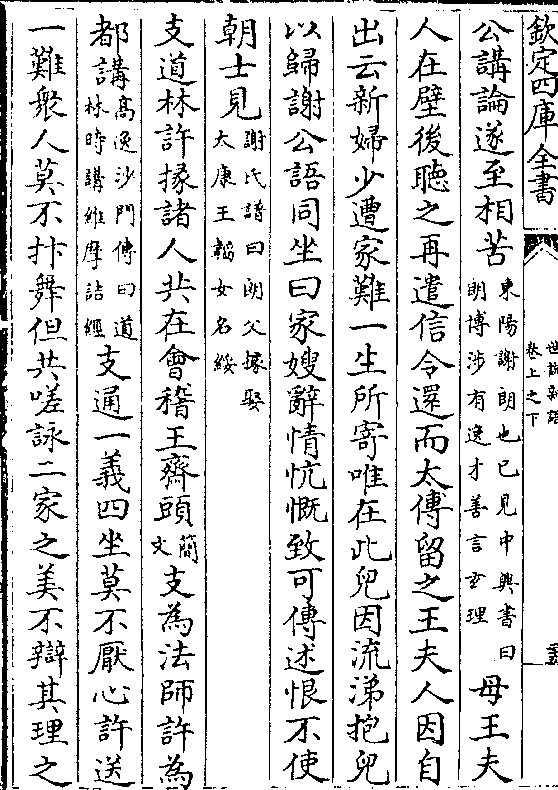 欽定四庫全書
世說新語
卷上之下
公講論遂至相苦東陽謝朗也已見中興書曰朗博涉有逸才善言玄理母王夫
人在壁後聽之再遣信令還而太傅留之王夫人因自
出云新婦少遭家難一生所寄唯在此兒因流涕抱兒
以歸謝公語同坐曰家嫂辭情忼慨致可傳述恨不使
朝士見謝氏譜曰朗父據娶太康王韜女名綏
支道林許掾諸人共在會稽王齋頭簡文支為法師許為
都講高逸沙門傳曰道林時講維摩詰經支通一義四坐莫不厭心許送
一難衆人莫不抃舞但共嗟詠二家之美不辯其理之